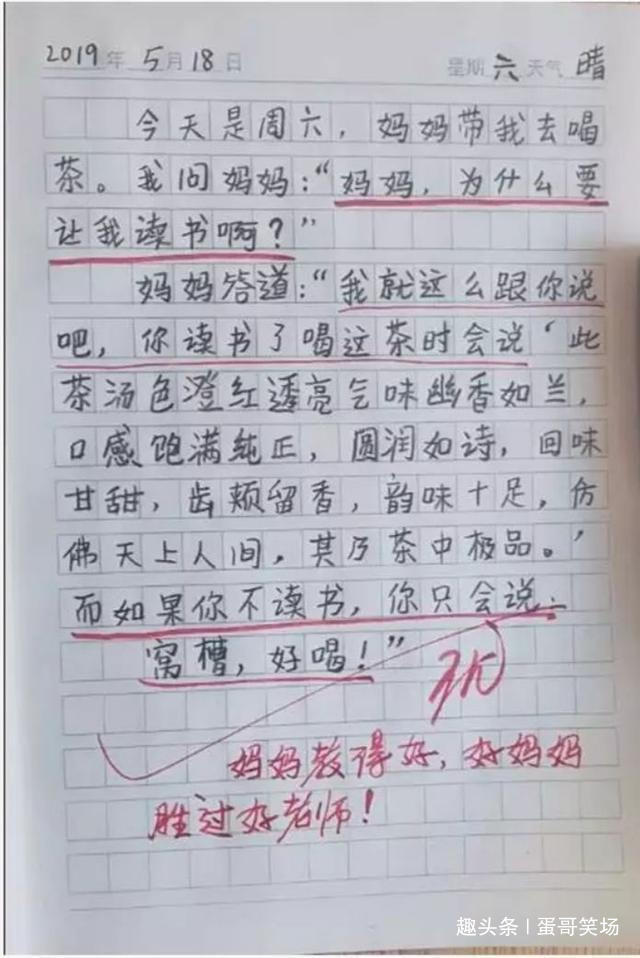 2019年5月18日 星期六天气晴
今天是周六，妈妈带我去喝
茶。我问妈妈：“妈妈，为什么要
让我读书啊？”
妈妈答道：“我就这么跟你说
吧，你读书了喝这茶时会说‘此
茶汤色澄红透亮气味幽香如兰，
口感饱满纯正，圆润如诗，回味
甘甜，齿颊留香，韵味十足，仿
佛天上人间，其乃茶中极品。’
而如果你不读书，你只会说：
窝槽，好喝！”
妈妈教得好，好妈妈
胜过好老师！
趣头条 | 蛋哥笑场